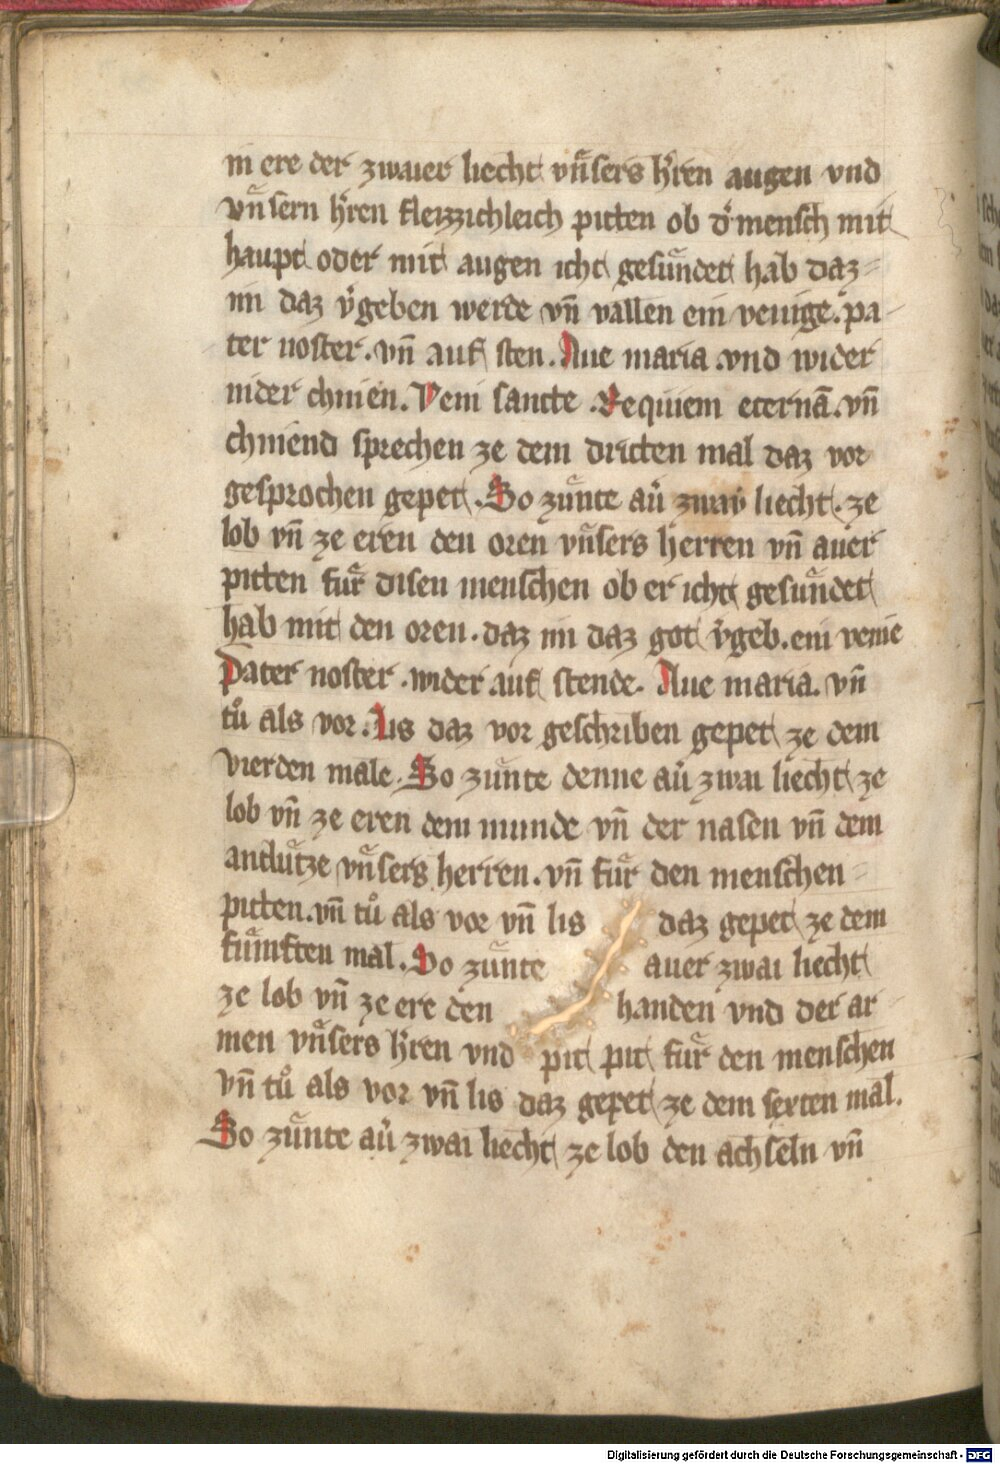 in ere der zwaier liecht vnͤsers hr̄en augen vnd
vnͤsern hr̄en fleizzichleich pitten ob d' mensch mit
haupt oder mit augen icht gesuͤndet hab daz=
im daz v'geben werde vn̄ vallen ein venige. pa-
ter noster. vn̄ auf sten. Aue maria. vnd wider
nider chnien. Veni sancte. Requiem eternā. vn̄
chniend sprechen ze dem dritten mal daz vor
gesprochen gepet. So zuͤnte au' zway liecht. ze
lob vn̄ ze eren den oren vnͤsers herren vn̄ auer
pitten fuͤr disen menschen ob er icht gesuͤndet
hab mit den oren. daz im daz got v'geb. ein venie
Pater noster. wider auf stende. Aue maria. vn̄
tuͦ als vor. Lis daz vor geschriben gepet ze dem
vierden male. So zuͤnte denne au' zwai liecht ze
lob vn̄ ze eren dem munde vn̄ der nasen vn̄ dem
antluͤtze vnͤsers herren. vn̄ fuͤr den menschen =
pitten. vn̄ tuͦ als vor vn̄ lis daz gepet ze dem
fuͤmften mal. So zuͤnte auer zwai liecht
ze lob vn̄ ze ere den handen vnd der ar-
men vnͤsers hr̄en vnd pit pit fuͤr den menschen
vn̄ tuͦ als vor vn̄ lis daz gepet ze dem sexten mal.
So zuͤnte au' zwai liecht ze lob den achseln vn̄
Digitalisierung gefördert durch die Deutsche Forschungsgemeinschaft - DFG